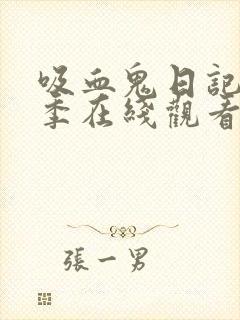 吸血鬼日記
季在綫觀看
張一男